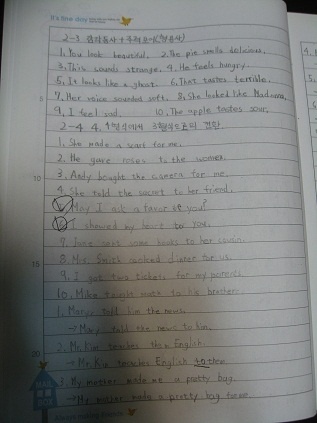 It's fine day
2-3 감각동사 + 주격보어(형용사)
1. You look beautiful. 2. The pie smells delicious.
3. This sounds strange. 4. He feels hungry.
5. It looks like a ghost. 6. That tastes terrible.
7. Her voice sounded soft. 8. She looked like Madonna.
9. I feel sad. 10. The apple tastes sour.
2-4 4. 4형식에서 3형식으로의
1. She made a scarf for me.
2. He gave roses to the women.
3. Andy bought the camera for me.
4. She told the secret to her friend.
May I ask a favor of you?
I showed my boat to you.
7. Jane sent some books to her cousin.
8. Mrs. Smith cooked dinner for us.
9. I got two tickets for my parents.
10. Mike taught math to his brother.
1. Mary told him the news.
→ Mary told the news to him.
2. Mr. Kim teaches them English.
→ Mr. Kim teaches English to them
3. My mother made me a pretty bag.
→ My mother made a pretty bag for me.
5
10
15
20